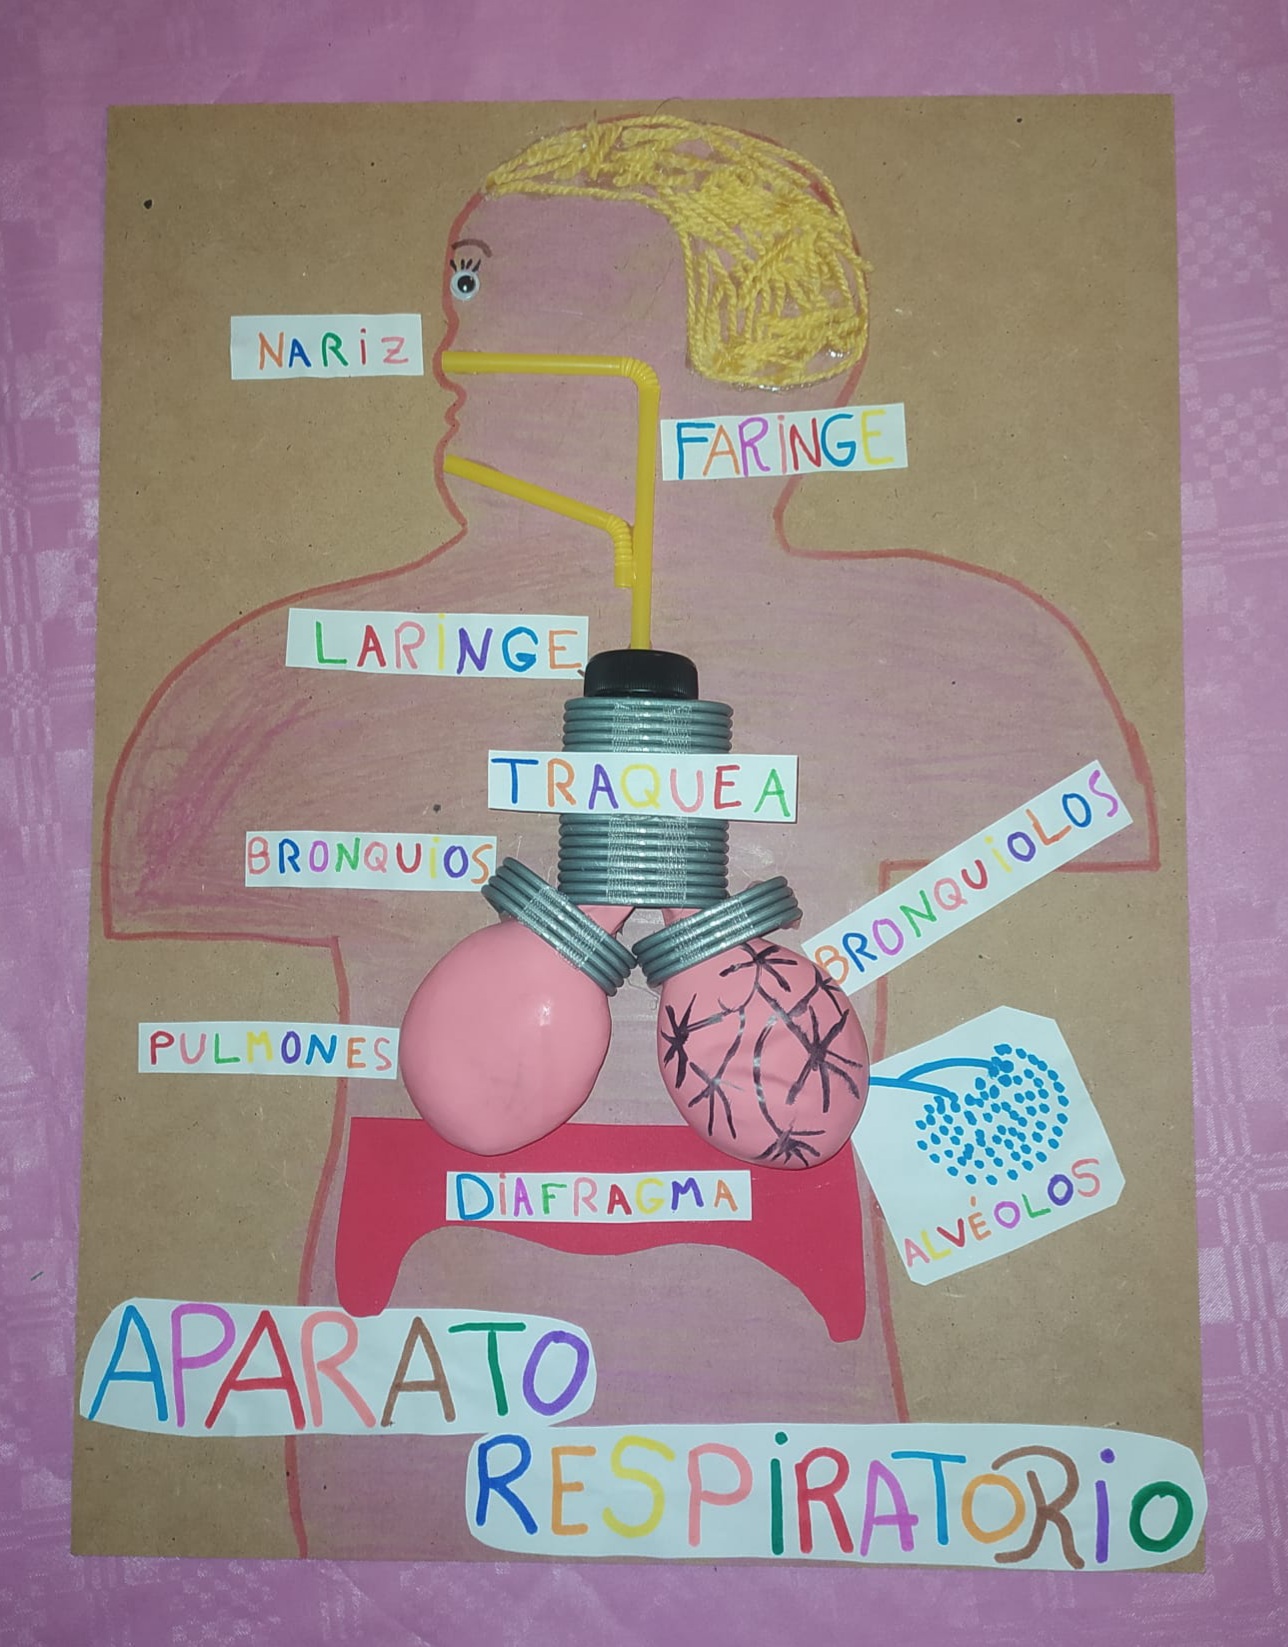 NARIZ
FARINGE
LARINGE
TRAQUEA
BRONQUIOS
BRONQUIOLOS
PULMONES
ALVÉOLOS
DIAFRAGMA
APARATO
RESPIRATORIO